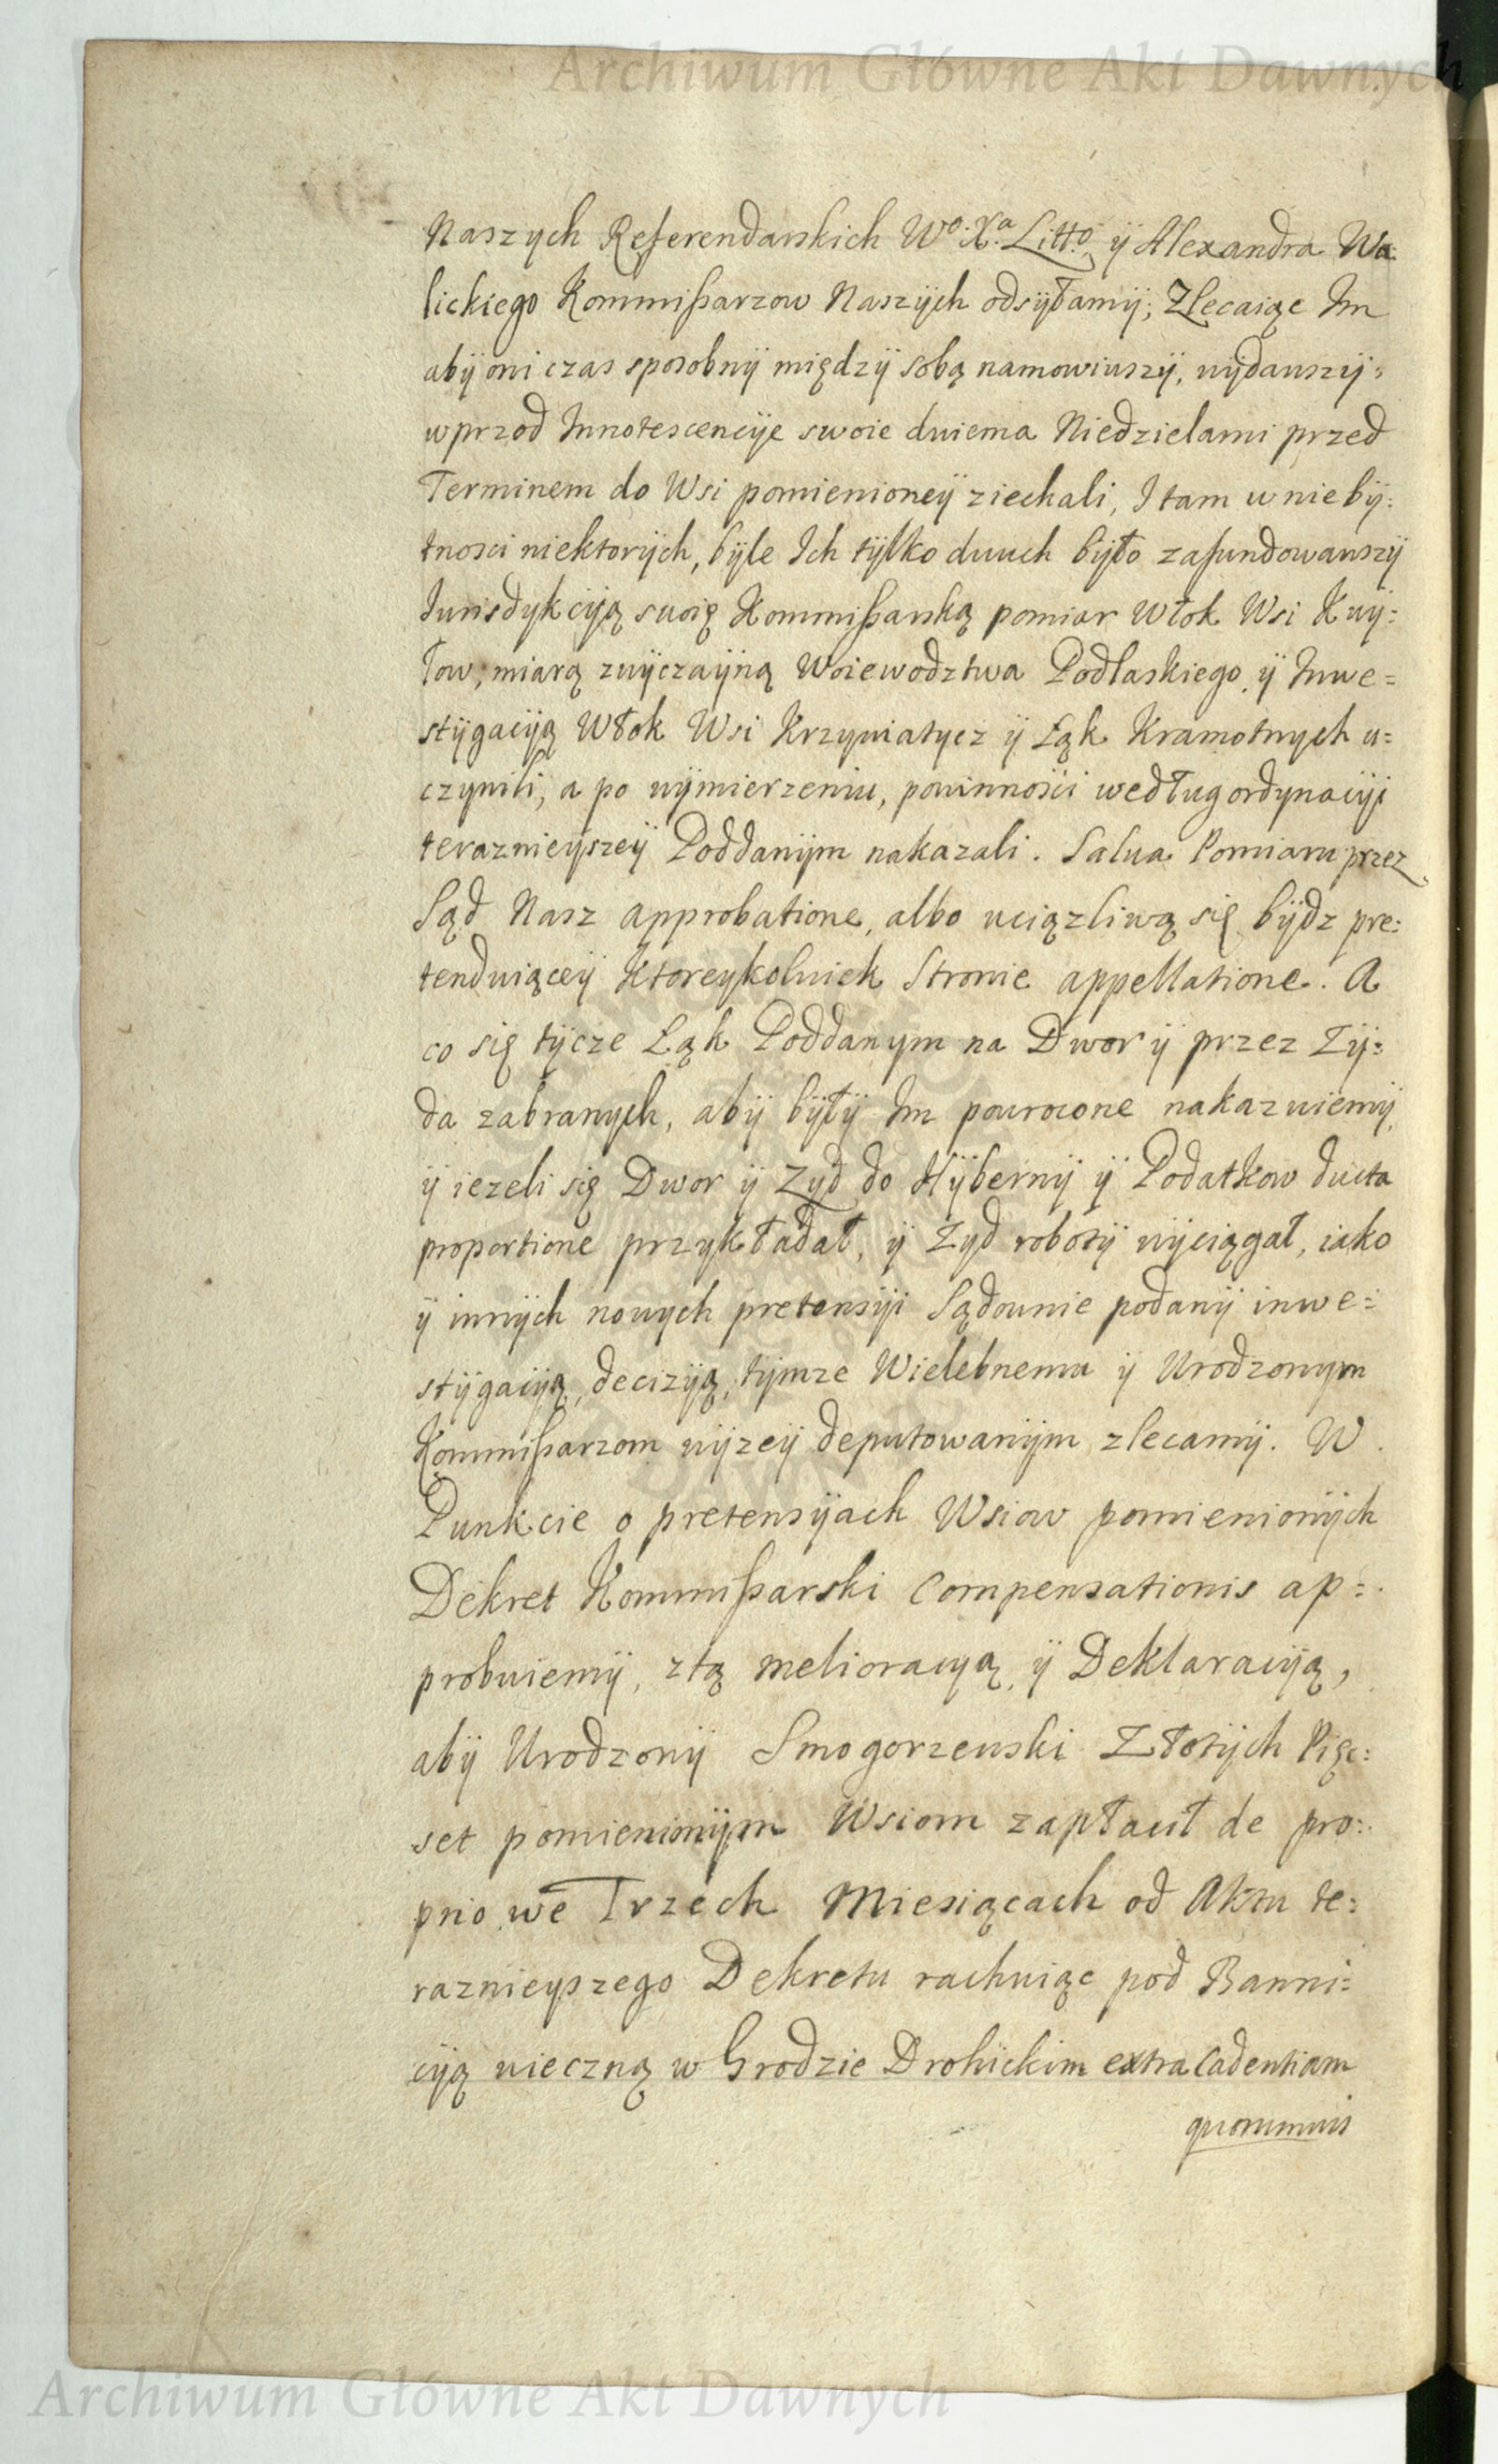 Archiwum Główne Akt Dawnych
Naszych Referendarskich Wo. Xa. Litto. ÿ Alexandra Wa:
lickiego Kommißarzow Naszÿch odsÿłamÿ; Zlecaiąc Im
abÿ oni czas sposobnÿ międzÿ sobą namowiwszÿ, wÿdawszÿ:
wprzod Innotescencÿe swoie dwiema Niedzielami przed
Terminem do Wsi pomienioneÿ ziechali, I tam w niebÿ:
tnosci niektorÿch, bÿle Ich tÿlko dwuch bÿło zafundowawszÿ
Iurisdykcÿą swoię Kommißarską pomiar Włok Wsi Kwÿ:
łow, miarą zwÿczaÿną Woiewodztwa Podlaskiego, ÿ Inwe=
stÿgacÿą Włok Wsi Krzywiatycz ÿ Łąk Kramotnych u=
czynili, a po wÿmierzeniu, powinnosci według ordynacÿi
teraznieÿszeÿ Poddanÿm nakazali. Salva Pomiaru przez
Sąd Nasz approbatione, albo uciązliwą się bÿdz pre:
tenduiąceÿ Ktoreykolwiek Stronie appellatione. A
co się tÿcze Łąk Poddanym na Dwor ÿ przez Zÿ:
da zabranych, abÿ bÿłÿ Im powrocone nakazuiemÿ,
ÿ iezeli się Dwor ÿ Zyd do Hÿbernÿ ÿ Podatkow ducta
proportione przykładał, ÿ Zyd robotÿ wÿciągał, iako
ÿ innÿch nowych pretensÿi Sądownie podanÿ inwe=
stÿgacÿą, decizÿą, tÿmze Wielebnemu ÿ Urodzonym
Kommißarzom wÿzeÿ deputowanÿm zlecamÿ. W
Punkcie o pretensÿach Wsiow pomienionÿch
Dekret Kommißarski Compensationis ap=
probuiemÿ, z tą melioracyą, ÿ Deklaracÿą,
abÿ Urodzonÿ Smogorzewski Złotÿch Pięc:
set pomienionÿm Wsiom zapłacił de pro:
prio we Trzech Miesiącach od Aktu te:
raznieyszego Dekretu rachuiąc pod Banni:
cÿą wieczną w Grodzie Drohickim extra Cadentiam
quorumvis
Archiwum Główne Akt Dawnych